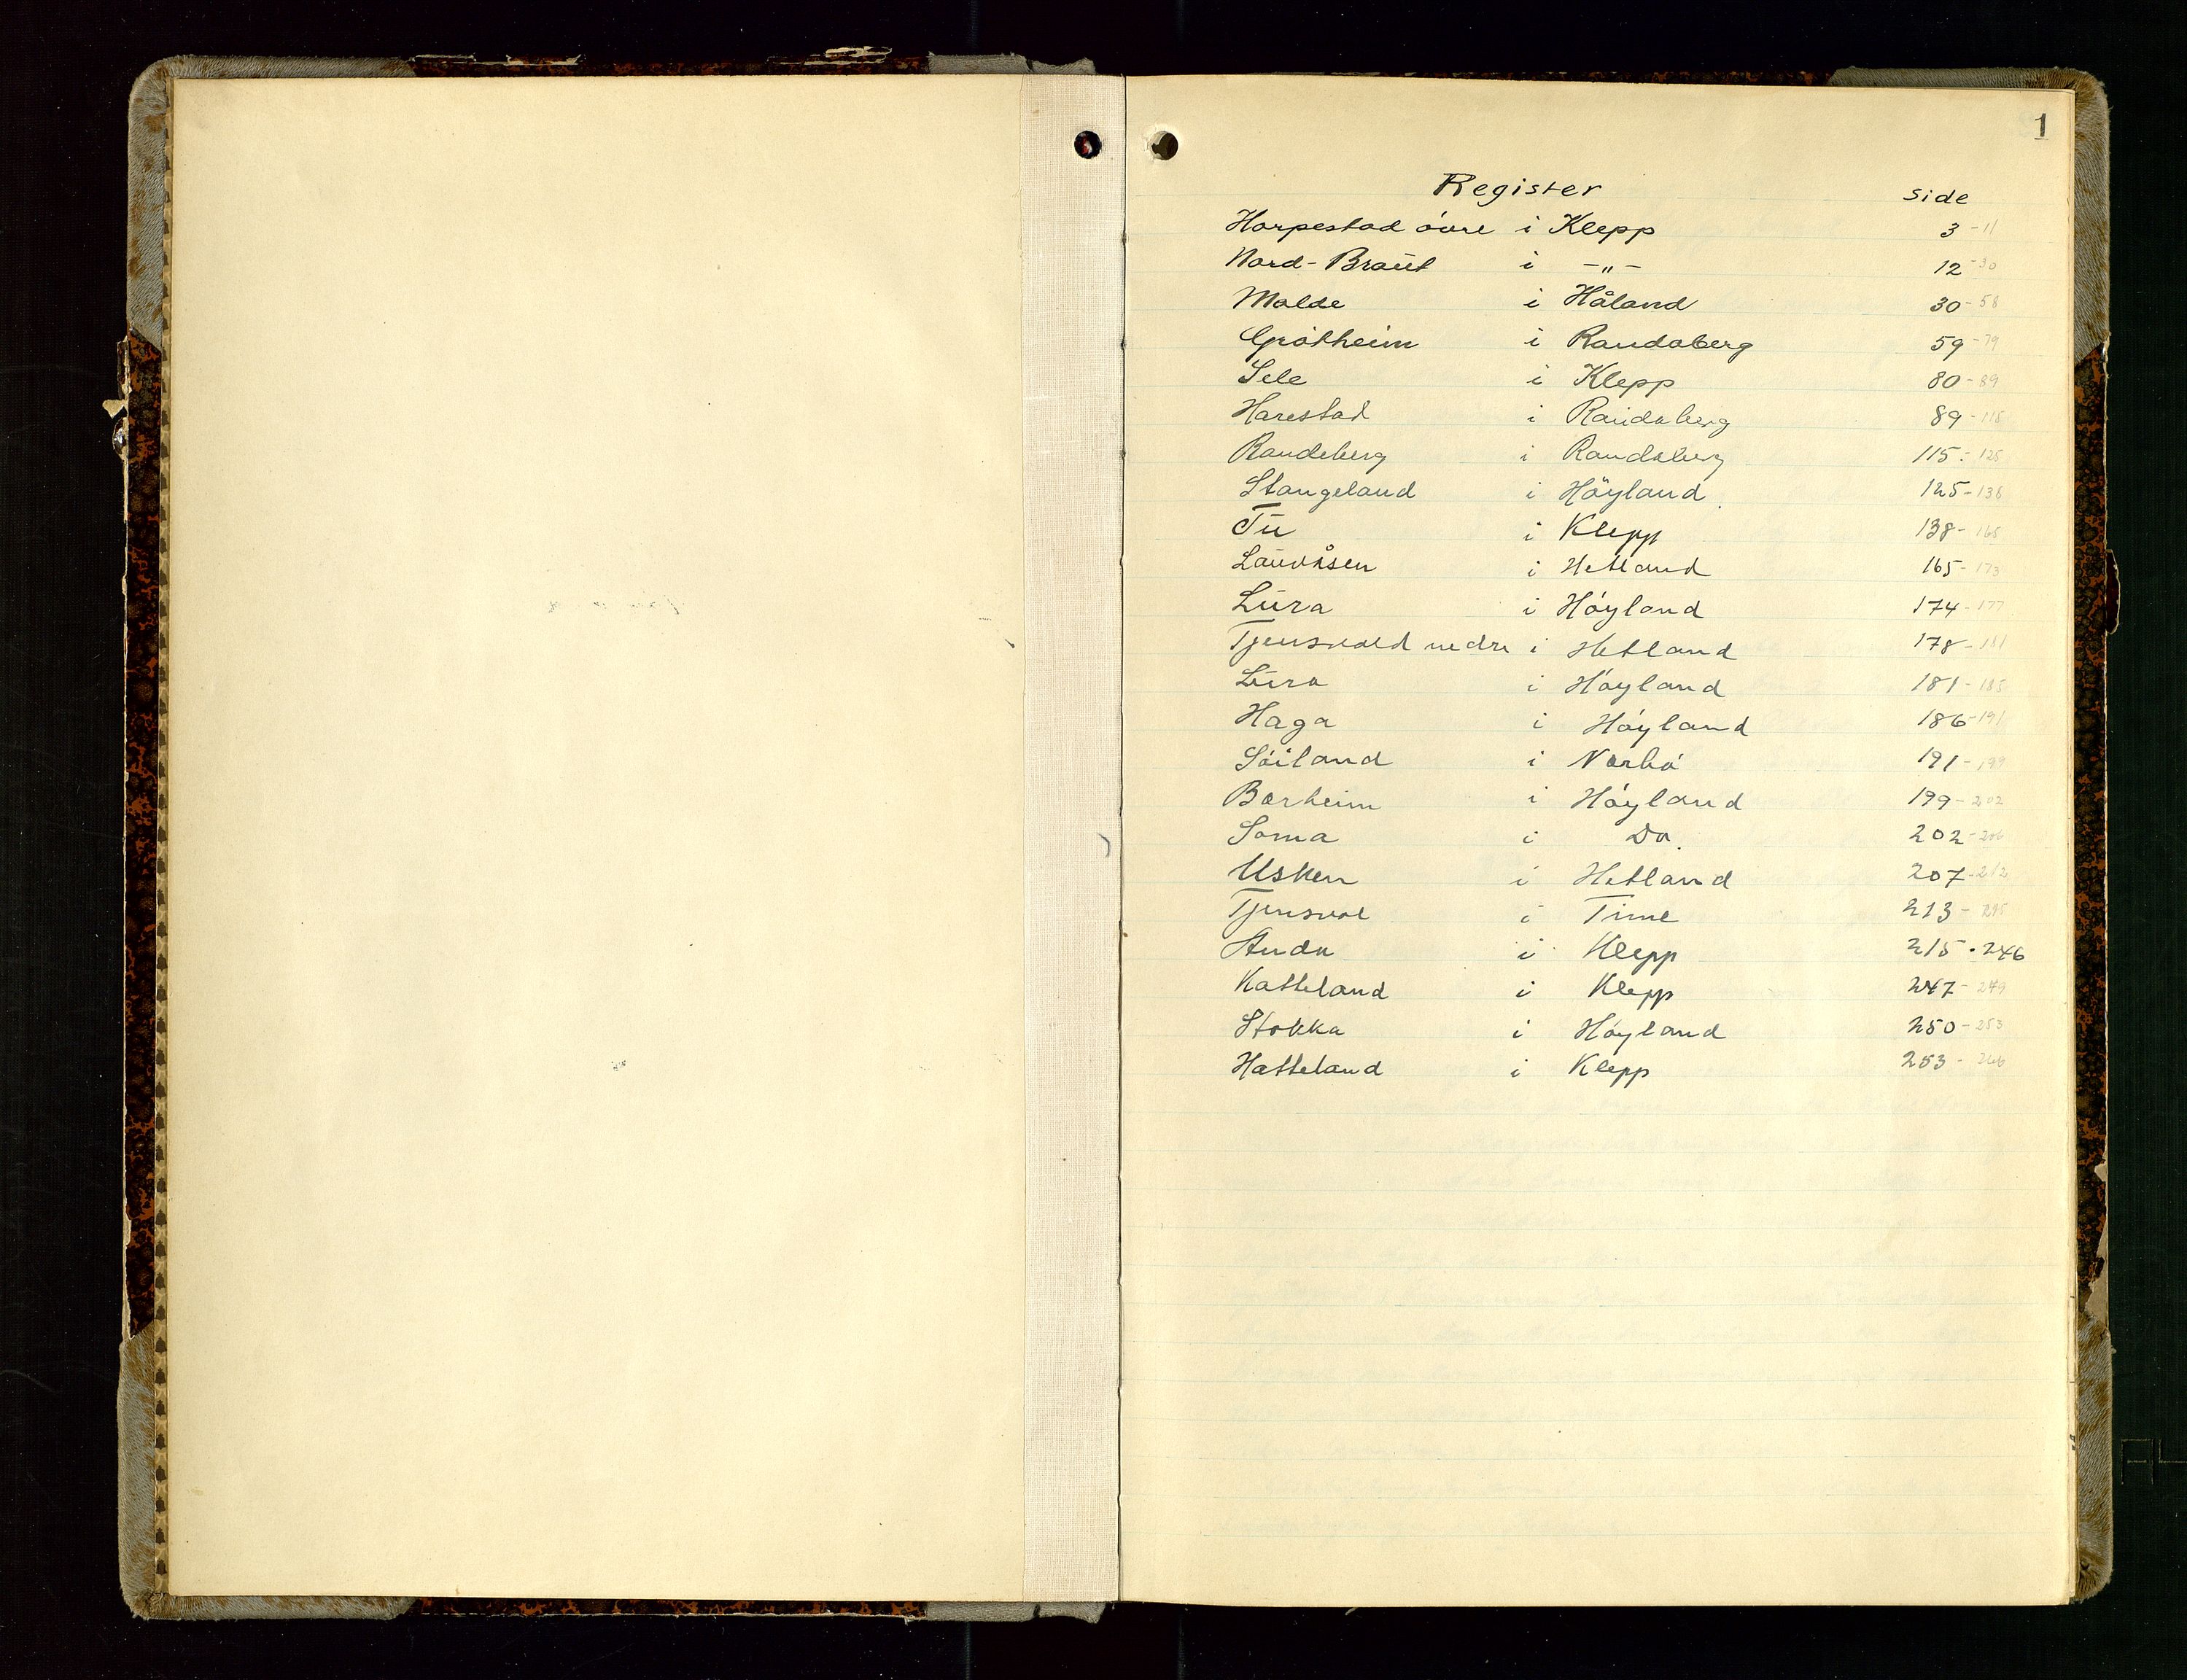 1
Register side
Harpestad övre i Klepp 3-11
Nord-Braut i -"- 12-30
Malde i Håland 30-58
Grötheim i Randaberg 59-79
Sele i Klepp 80-89
Harestad i Randaberg 89-115
Randeberg i Randaberg 115-125
Stangeland i Höyland 125-138
Tu i Klepp 138-165
Lauvåsen i Hetland 165-173
Lura i Höyland 174-177
Tjensvold nedre i Hetland 178-181
Lura i Höyland 181-185
Haga i Höyland 186-191
Söiland i Nærbö 191-199
Bærheim i Höyland 199-202
Soma i Do. 202-206
Usken i Hetland 207-212
Tjensvol i Time 213-215
Anda i Klepp 215-246
Katteland i Klepp 247-249
Stokka i Höyland 250-253
Hatteland i Klepp 253-266